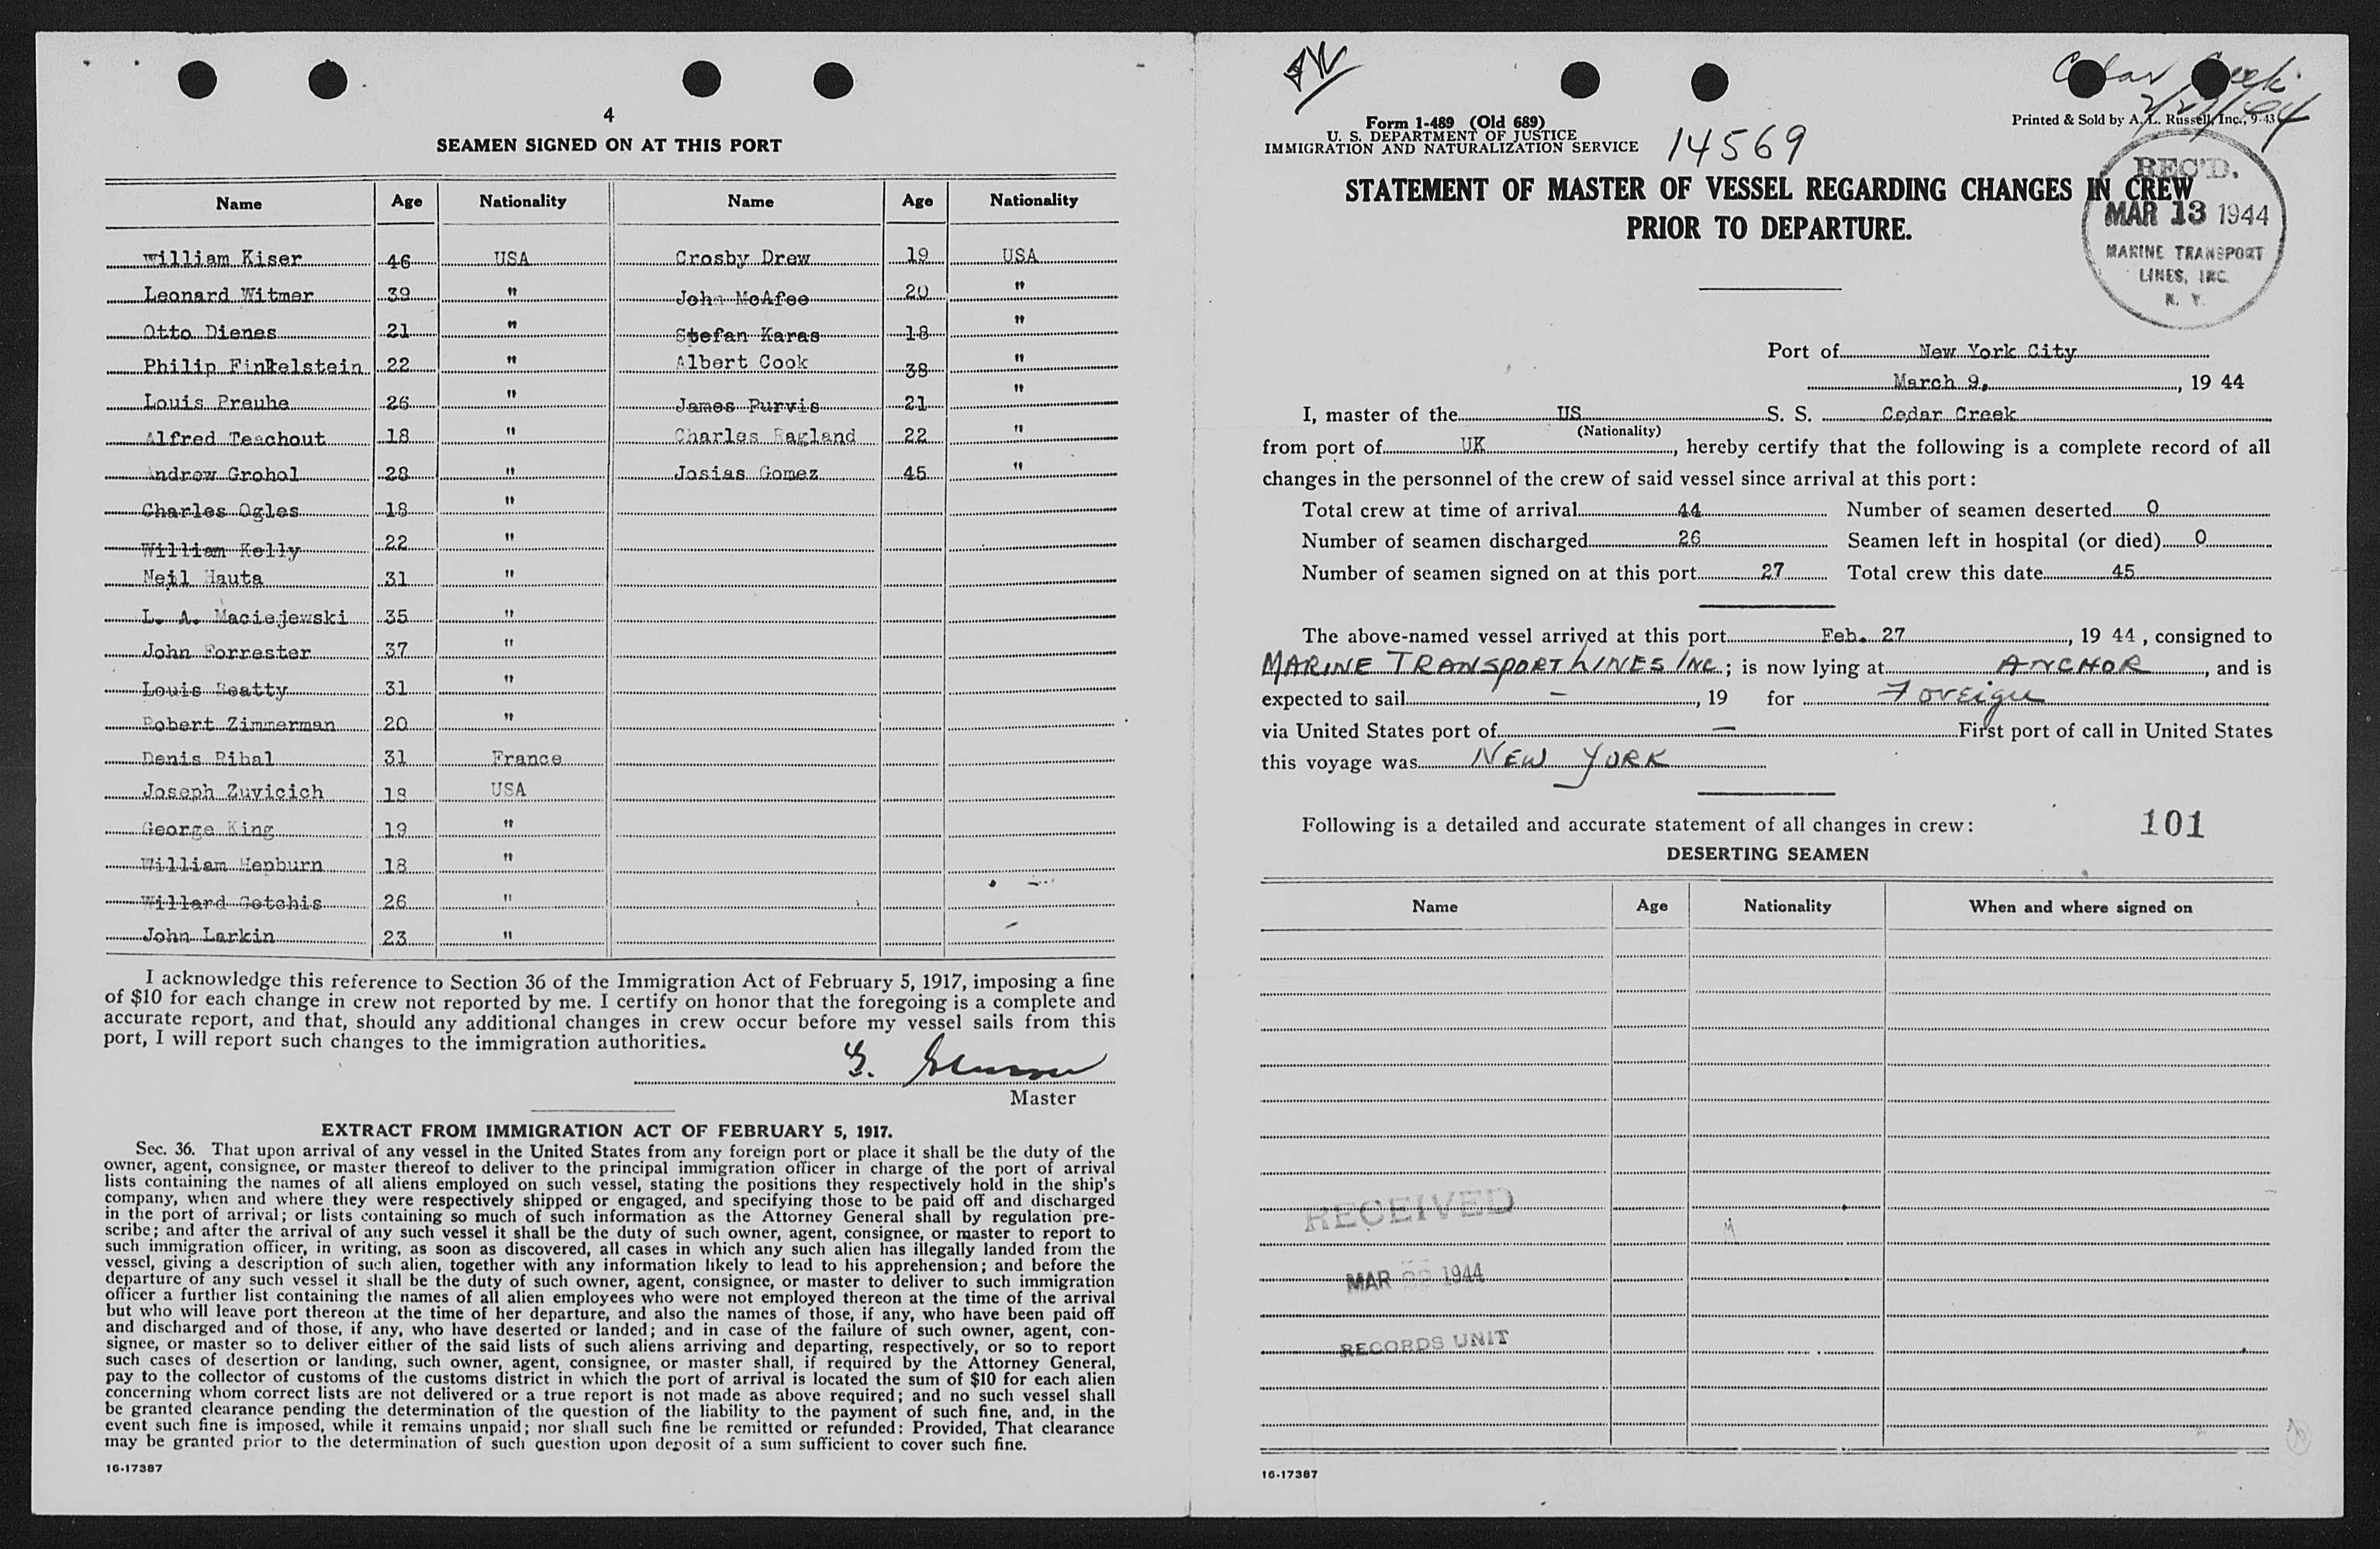 4
SEAMEN SIGNED ON AT THIS PORT
Name Age Nationality Name Age Nationality
William Kiser 46 USA Crosby Drew 19 USA
Leonard Witmer 39 " John McAfee 20 "
Otto Dienes 21 " Stefan Karas 18 "
Philip Finkelstein 22 " Albert Cook 38 "
Louis Preuhe 26 " James Purvis 21 "
Alfred Teachout 18 " Charles Ragland 22 "
Andrew Grohol 28 " Josias Gomez 45 "
Charles Ogles 18 "
William Kelly 22 "
Neil Hauta 31 "
L. A. Maciejewski 35 "
John Forrester 37 "
Louis Beatty 31 "
Robert Zimmerman 20 "
Denis Ribal 31 France
Joseph Zuvicich 18 USA
George King 19 "
William Hepburn 18 "
Willard Gotchis 26 "
John Larkin 23 "
I acknowledge this reference to Section 36 of the Immigration Act of February 5, 1917, imposing a fine
of $10 for each change in crew not reported by me. I certify on honor that the foregoing is a complete and
accurate report, and that, should any additional changes in crew occur before my vessel sails from this
port, I will report such changes to the immigration authorities.
Master
EXTRACT FROM IMMIGRATION ACT OF FEBRUARY 5, 1917.
Sec. 36. That upon arrival of any vessel in the United States from any foreign port or place it shall be the duty of the
owner, agent, consignee, or master thereof to deliver to the principal immigration officer in charge of the port of arrival
lists containing the names of all aliens employed on such vessel, stating the positions they respectively hold in the ship's
company, when and where they were respectively shipped or engaged, and specifying those to be paid off and discharged
in the port of arrival; or lists containing so much of such information as the Attorney General shall by regulation pre-
scribe; and after the arrival of any such vessel it shall be the duty of such owner, agent, consignee, or master to report to
such immigration officer, in writing, as soon as discovered, all cases in which any such alien has illegally landed from the
vessel, giving a description of such alien, together with any information likely to lead to his apprehension; and before the
departure of any such vessel it shall be the duty of such owner, agent, consignee, or master to deliver to such immigration
officer a further list containing the names of all alien employees who were not employed thereon at the time of the arrival
but who will leave port thereon at the time of her departure, and also the names of those, if any, who have been paid off
and discharged and of those, if any, who have deserted or landed; and in case of the failure of such owner, agent, con-
signee, or master so to deliver either of the said lists of such aliens arriving and departing, respectively, or so to report
such cases of desertion or landing, such owner, agent, consignee, or master shall, if required by the Attorney General,
pay to the collector of customs of the customs district in which the port of arrival is located the sum of $10 for each alien
concerning whom correct lists are not delivered or a true report is not made as above required; and no such vessel shall
be granted clearance pending the determination of the question of the liability to the payment of such fine, and, in the
event such fine is imposed, while it remains unpaid; nor shall such fine be remitted or refunded: Provided, That clearance
may be granted prior to the determination of such question upon deposit of a sum sufficient to cover such fine.
16-17387
Form 1-489 (Old 689)
U. S. DEPARTMENT OF JUSTICE
IMMIGRATION AND NATURALIZATION SERVICE
14569
Printed & Sold by A. L. Russell, Inc., 9-43
2/27/44
STATEMENT OF MASTER OF VESSEL REGARDING CHANGES IN CREW
PRIOR TO DEPARTURE.
REC'D.
MAR 13 1944
MARINE TRANSPORT
LINES, INC.
N. Y.
Port of New York City
March 9, 19 44
I, master of the US S. S. Cedar Creek
(Nationality)
from port of UK, hereby certify that the following is a complete record of all
changes in the personnel of the crew of said vessel since arrival at this port:
Total crew at time of arrival 44 Number of seamen deserted 0
Number of seamen discharged 26 Seamen left in hospital (or died) 0
Number of seamen signed on at this port 27 Total crew this date 45
The above-named vessel arrived at this port Feb. 27, 19 44, consigned to
MARINE TRANSPORT LINES INC; is now lying at ANCHOR, and is
expected to sail -, 19 for Foreign
via United States port of - First port of call in United States
this voyage was NEW YORK
Following is a detailed and accurate statement of all changes in crew:
101
DESERTING SEAMEN
Name Age Nationality When and where signed on
RECEIVED
MAR 1944
RECORDS UNIT
16-17387